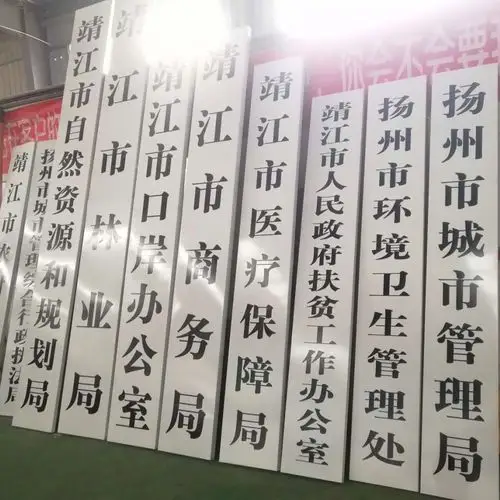 靖江市农
扬州市城市管理综合行政执法局
靖江市自然资源和规划局
靖江市林业局
靖江市口岸办公室
靖江市商务局
靖江市医疗保障局
靖江市人民政府扶贫工作办公室
扬州市环境卫生管理处
扬州市城市管理局
你会不会要